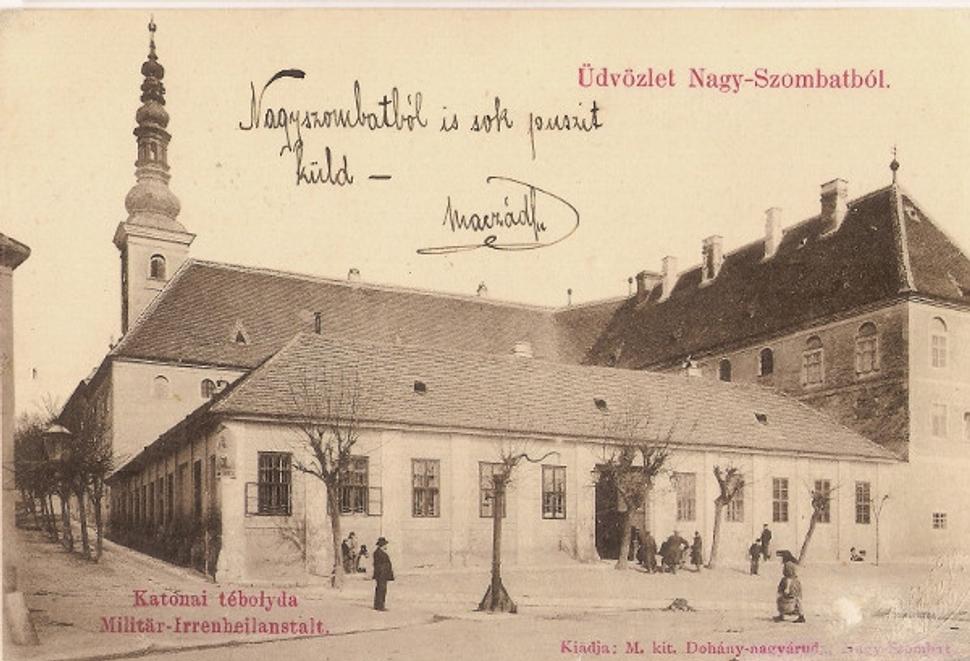 Üdvözlet Nagy-Szombatból.
Nagyszombatból is sok puszit
küld —
Katonai tébolyda
Militär-Irrenheilanstalt.
Kiadja: M. kit. Dohány-nagyárud., Nagy-Szombat.